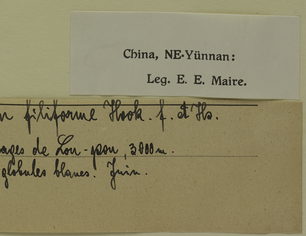 China, NE-Yünnan:
Leg. E. E. Maire.
filiforme Hook. f. & Th.
ages de Lou-pou, 3000 m.
globules blancs. Juin.